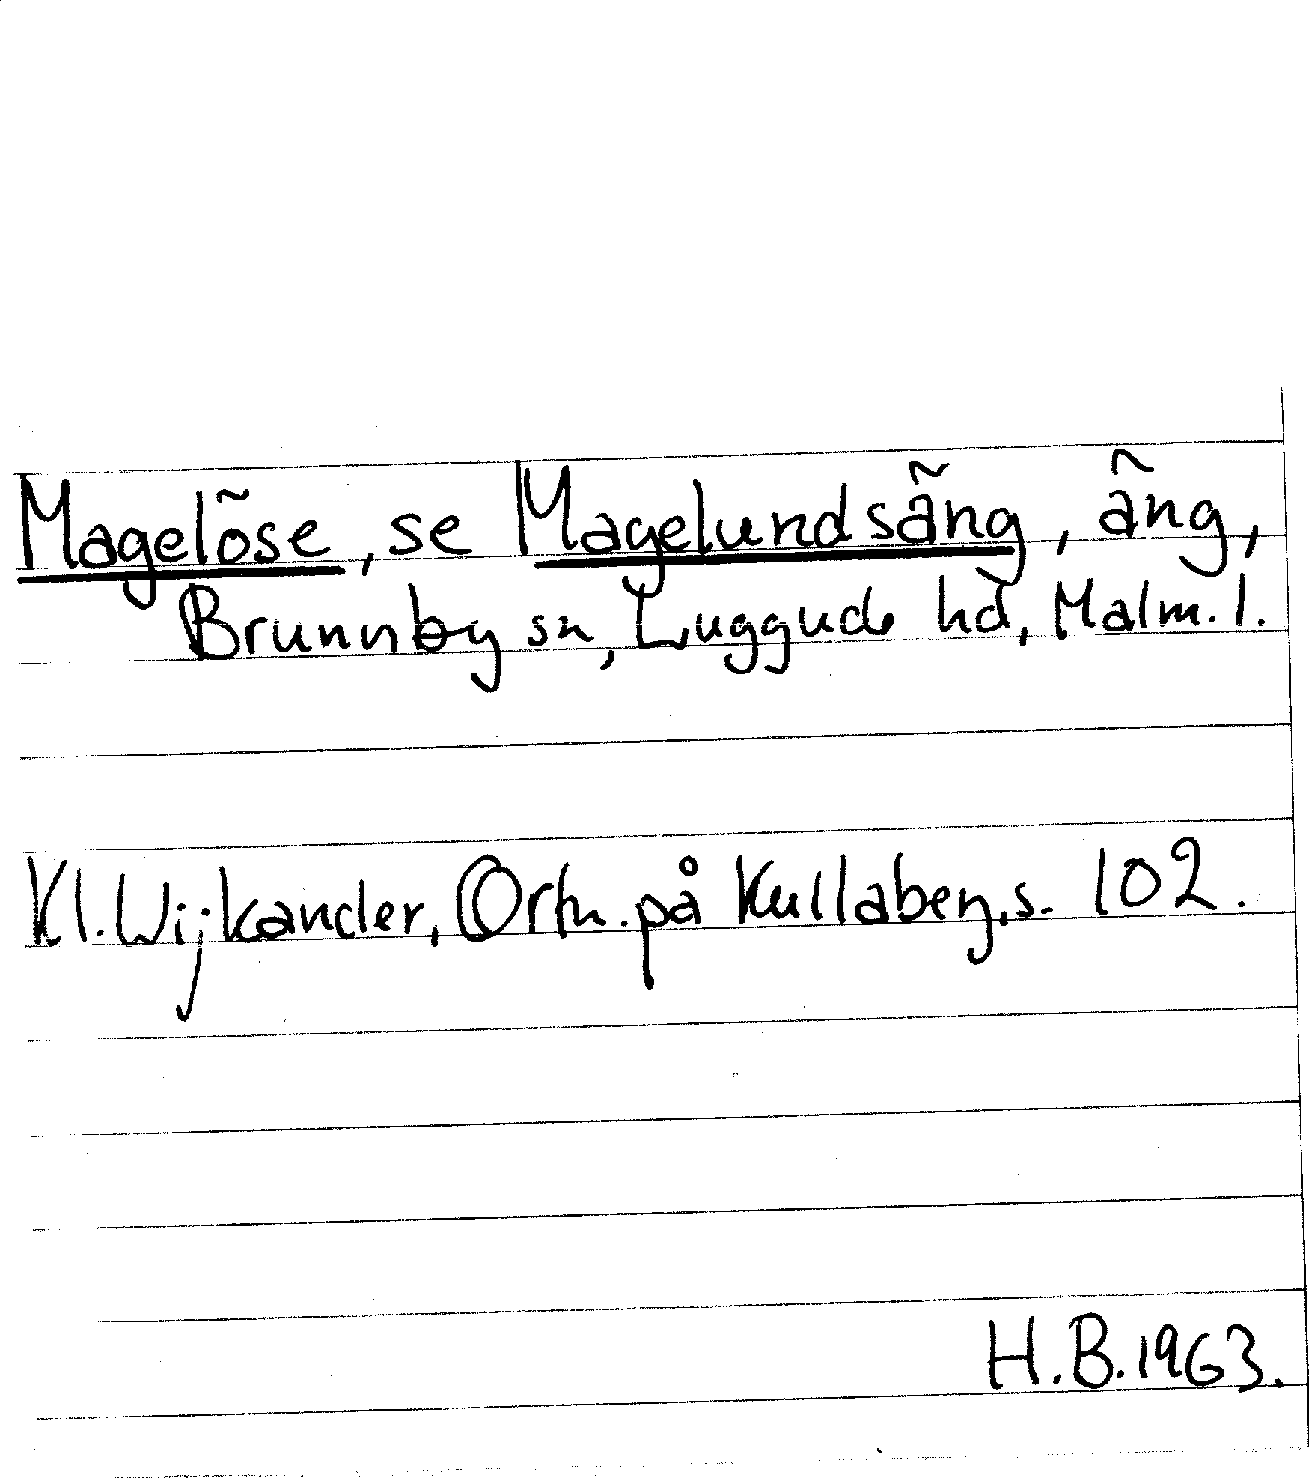 Magelöse, se Magelundsäng, äng,
Brunnby sn, Luggude hd, Malm. l.
Kl. Wijkander, Ortn. på Kullaberg, s. 102.
H.B. 1963.